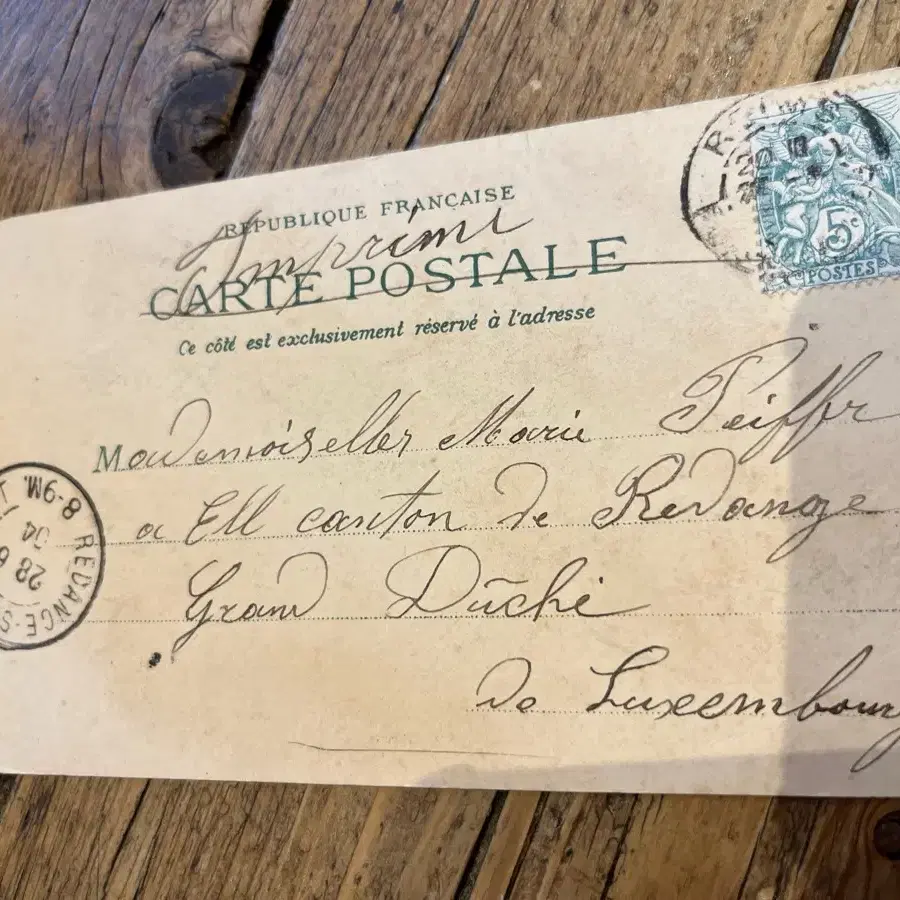 RÉPUBLIQUE FRANÇAISE
Imprimé
CARTE POSTALE
Ce côté est exclusivement réservé à l'adresse
5c
POSTES
Mademoiselles Marie Peiffer
a Ell canton de Redange
Grand Duché
de Luxembourg
8-9M.
REDANGE-S
28 6
04